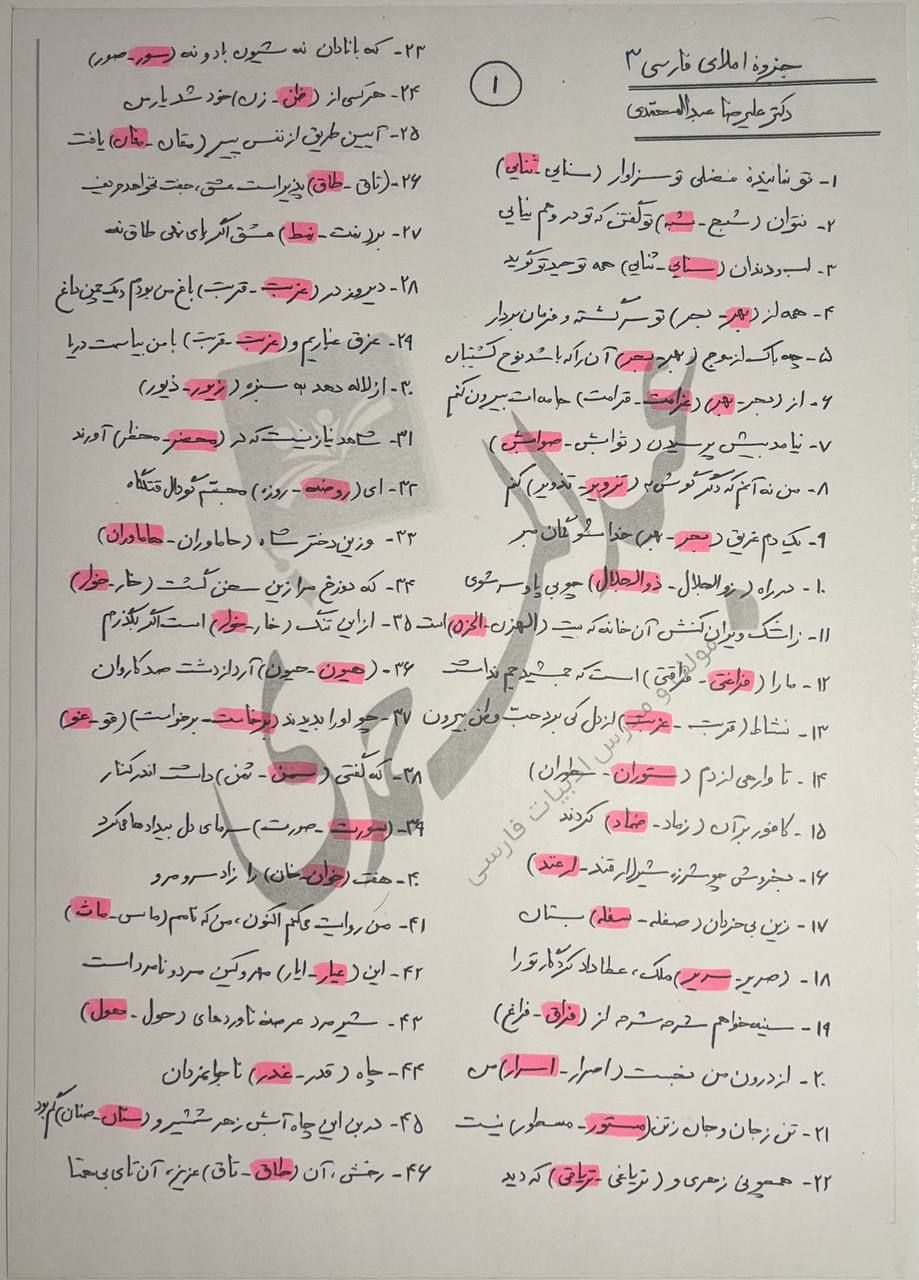 جزوهٔ املای فارسی ۳
دکتر علیرضا عبدالمحمدی
۱
۱- تو نمایندهٔ فضلی تو سزاوار (سنایی - ثنایی)
۲- نتوان (شبح - شبه) تو گفتن که تو در وهم نیایی
۳- لب و دندان (سنایی - ثنایی) همه توحید تو گوید
۴- همه از (بهر - بحر) تو سرگشته و فرمان بردار
۵- چه باک از موج (بهر - بحر) آن را که باشد نوح کشتیبان
۶- از (بحر - بهر) (غرامت - قرامت) جامه ات بیرون کنم
۷- نیامد بیش پرسیدن (ثوابش - صوابش)
۸- من نه آنم که دگر گوش به (تزویر - تذویر) کنم
۹- یک دم غریق (بحر - بهر) خدا شو گمان مبر
۱۰- در راه (زوالجلال - ذوالجلال) چو بی پا و سر شوی
۱۱- ز اشک ویران کنش آن خانه که بیت (الهزن - الحزن) است
۱۲- ما را (فراغتی - فراقتی) است که جمشید جم نداشت
۱۳- نشاط (قربت - غربت) از دل کی برد حب وطن بیرون
۱۴- تا وارهی از دم (ستوران - سطوران)
۱۵- کافور بر آن (زماد - ضماد) کردند
۱۶- بخروش چو شرزه شیر (ارقند - ارغند)
۱۷- زین بی خردان (صفله - سفله) بستان
۱۸- (صریر - سریر) ملک، عطا داد کردگار تو را
۱۹- سینه خواهم شرحه شرحه از (فراق - فراغ)
۲۰- از درون من نجست (اصرار - اسرار) من
۲۱- تن ز جان و جان ز تن (مستور - مسطور) نیست
۲۲- همچو نی زهری و (تریاغی - تریاقی) که دید
۲۳- که بانادان نه شیون باد و نه (سور - صور)
۲۴- هر کسی از (ظن - زن) خود شد یار من
۲۵- آیین طریق از نفس پیر (مقان - مغان) یافت
۲۶- (تاق - طاق) پذیر است عشق، جفت نخواهد حریف
۲۷- بر (نمت - نمط) عشق اگر پای نهی طاق نه
۲۸- دیروز در (غربت - قربت) باغ من بودم و یک چمن داغ
۲۹- غرق غباریم و (غربت - قربت) با من بیا سمت دریا
۳۰- از لاله دهد به سبزه (زیور - ذیور)
۳۱- شاهد نیاز نیست که در (محضر - محظر) آورند
۳۲- ای (روضه - روزه) مجسم گودال قتلگاه
۳۳- وزین دختر شاه (حاماوران - هاماوران)
۳۴- که دوزخ مرا زین سخن گشت (خار - خوار)
۳۵- از این تنگ (خار - خوار) است اگر بگذرم
۳۶- (هیون - حیون) آرد از دشت صد کاروان
۳۷- چو او را بدیدند (برخاست - برخواست) (قو - غو)
۳۸- که گفتی (سمن - ثمن) داشت اندر کنار
۳۹- (سورت - صورت) سرمای دی بیدادها می کرد
۴۰- هفت (خوان - خان) را زاد سرو مرو
۴۱- من روایت می کنم اکنون، من که نامم (ماس - ماث)
۴۲- این (عیار - ایار) مهر و کین مرد و نامرد است
۴۳- شیر مرد عرصهٔ ناوردهای (حول - هول)
۴۴- چاه (قدر - غدر) ناجوانمردان
۴۵- در بن این چاه آبش زهر شمشیر و (سنان - صنان) گم بود
۴۶- رخش، آن (طاق - تاق) عزیز، آن تای بی همتا
عبدالمحمدی
مولف و مدرس ادبیات فارسی